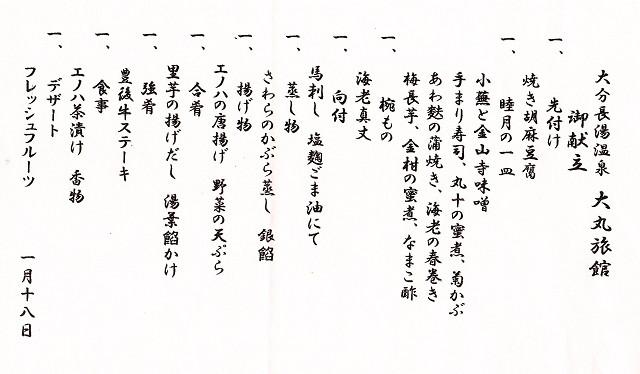 大分長湯温泉 大丸旅館
御献立
一、先付け
焼き胡麻豆腐
一、睦月の一皿
小蕪と金山寺味噌
手まり寿司、丸十の蜜煮、菊かぶ
あわ麩の蒲焼き、海老の春巻き
梅長芋、金柑の蜜煮、なまこ酢
一、椀もの
海老真丈
一、向付
馬刺し 塩麹ごま油にて
一、蒸し物
さわらのかぶら蒸し 銀餡
一、揚げ物
エノハの唐揚げ 野菜の天ぷら
一、合肴
里芋の揚げだし 湯葉餡かけ
一、強肴
豊後牛ステーキ
一、食事
エノハ茶漬け 香物
一、デザート
フレッシュフルーツ 一月十八日